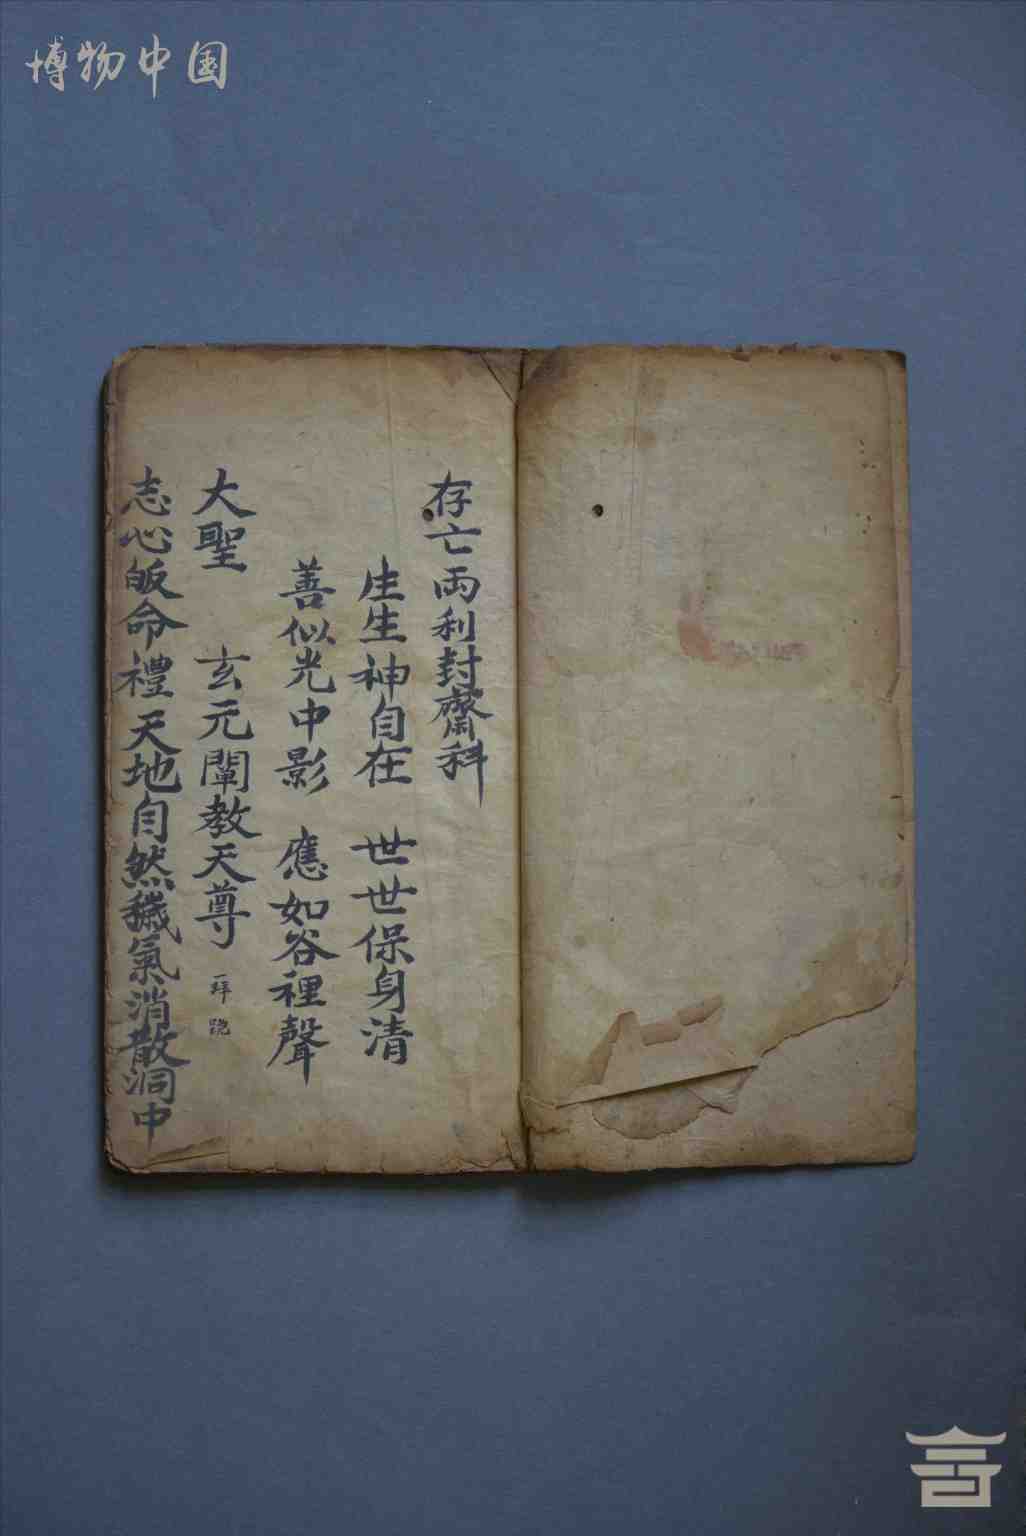 博物中国
存亡两利封齋科
生生神自在 世世保身清
善似光中影 應如谷裡聲
大聖 玄元闡教天尊 拜跪
志心皈命禮天地自然穢氣消散洞中